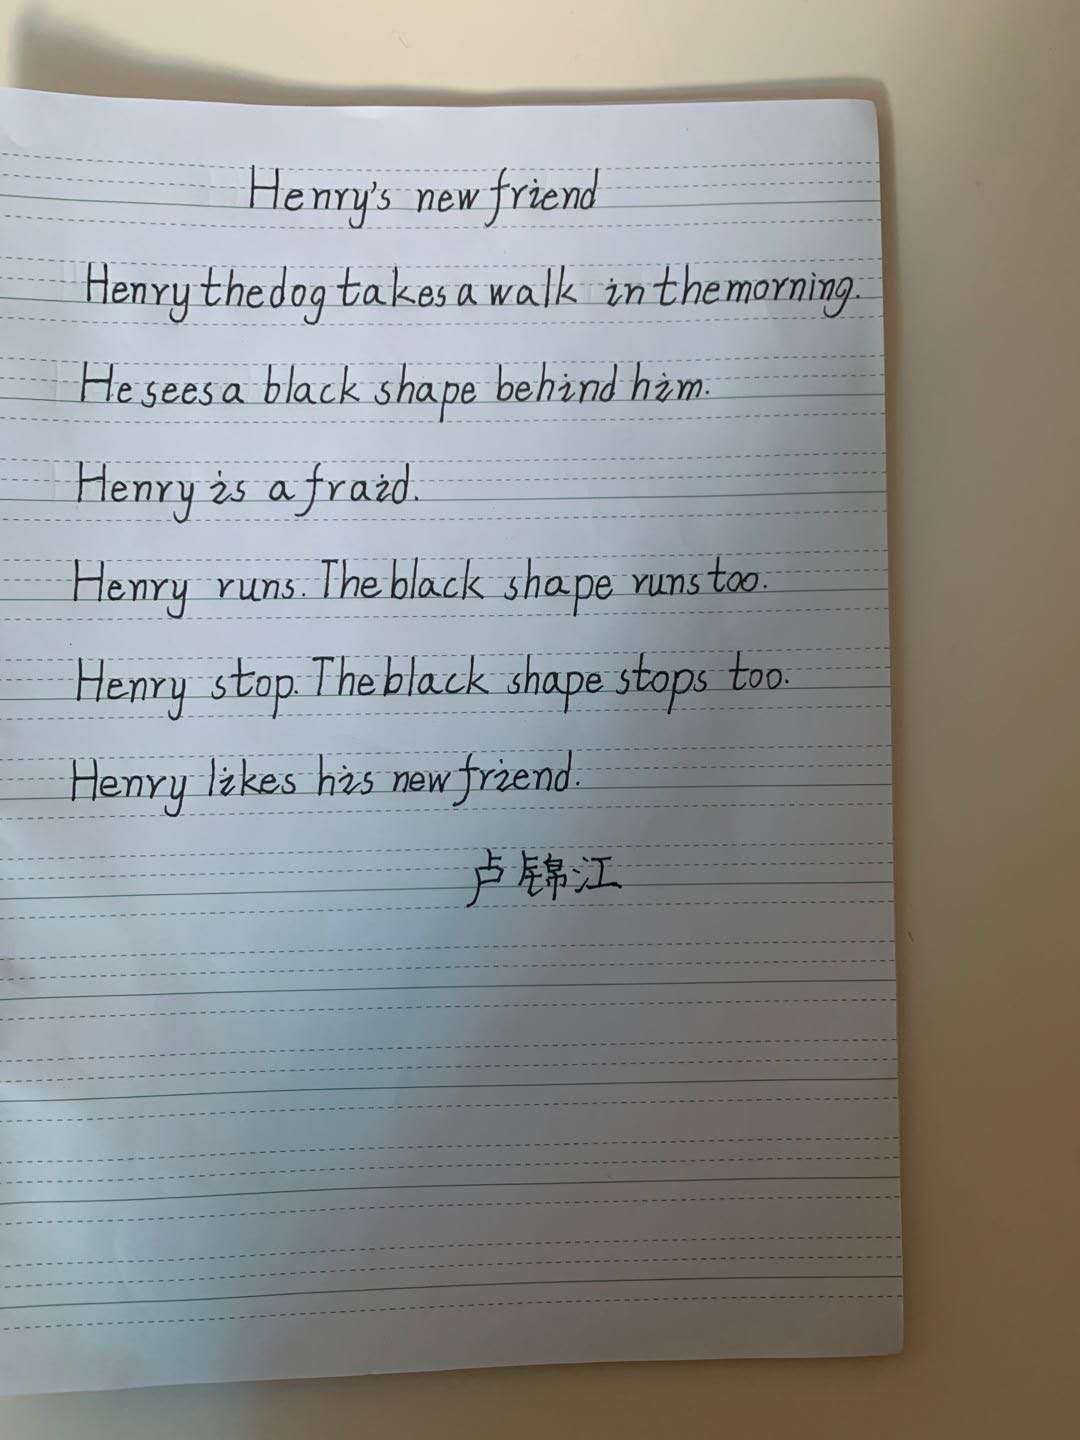 Henry's new friend
Henry the dog takes a walk in the morning.
He sees a black shape behind him.
Henry is afraid.
Henry runs. The black shape runs too.
Henry stop. The black shape stops too.
Henry likes his new friend.
卢锦江